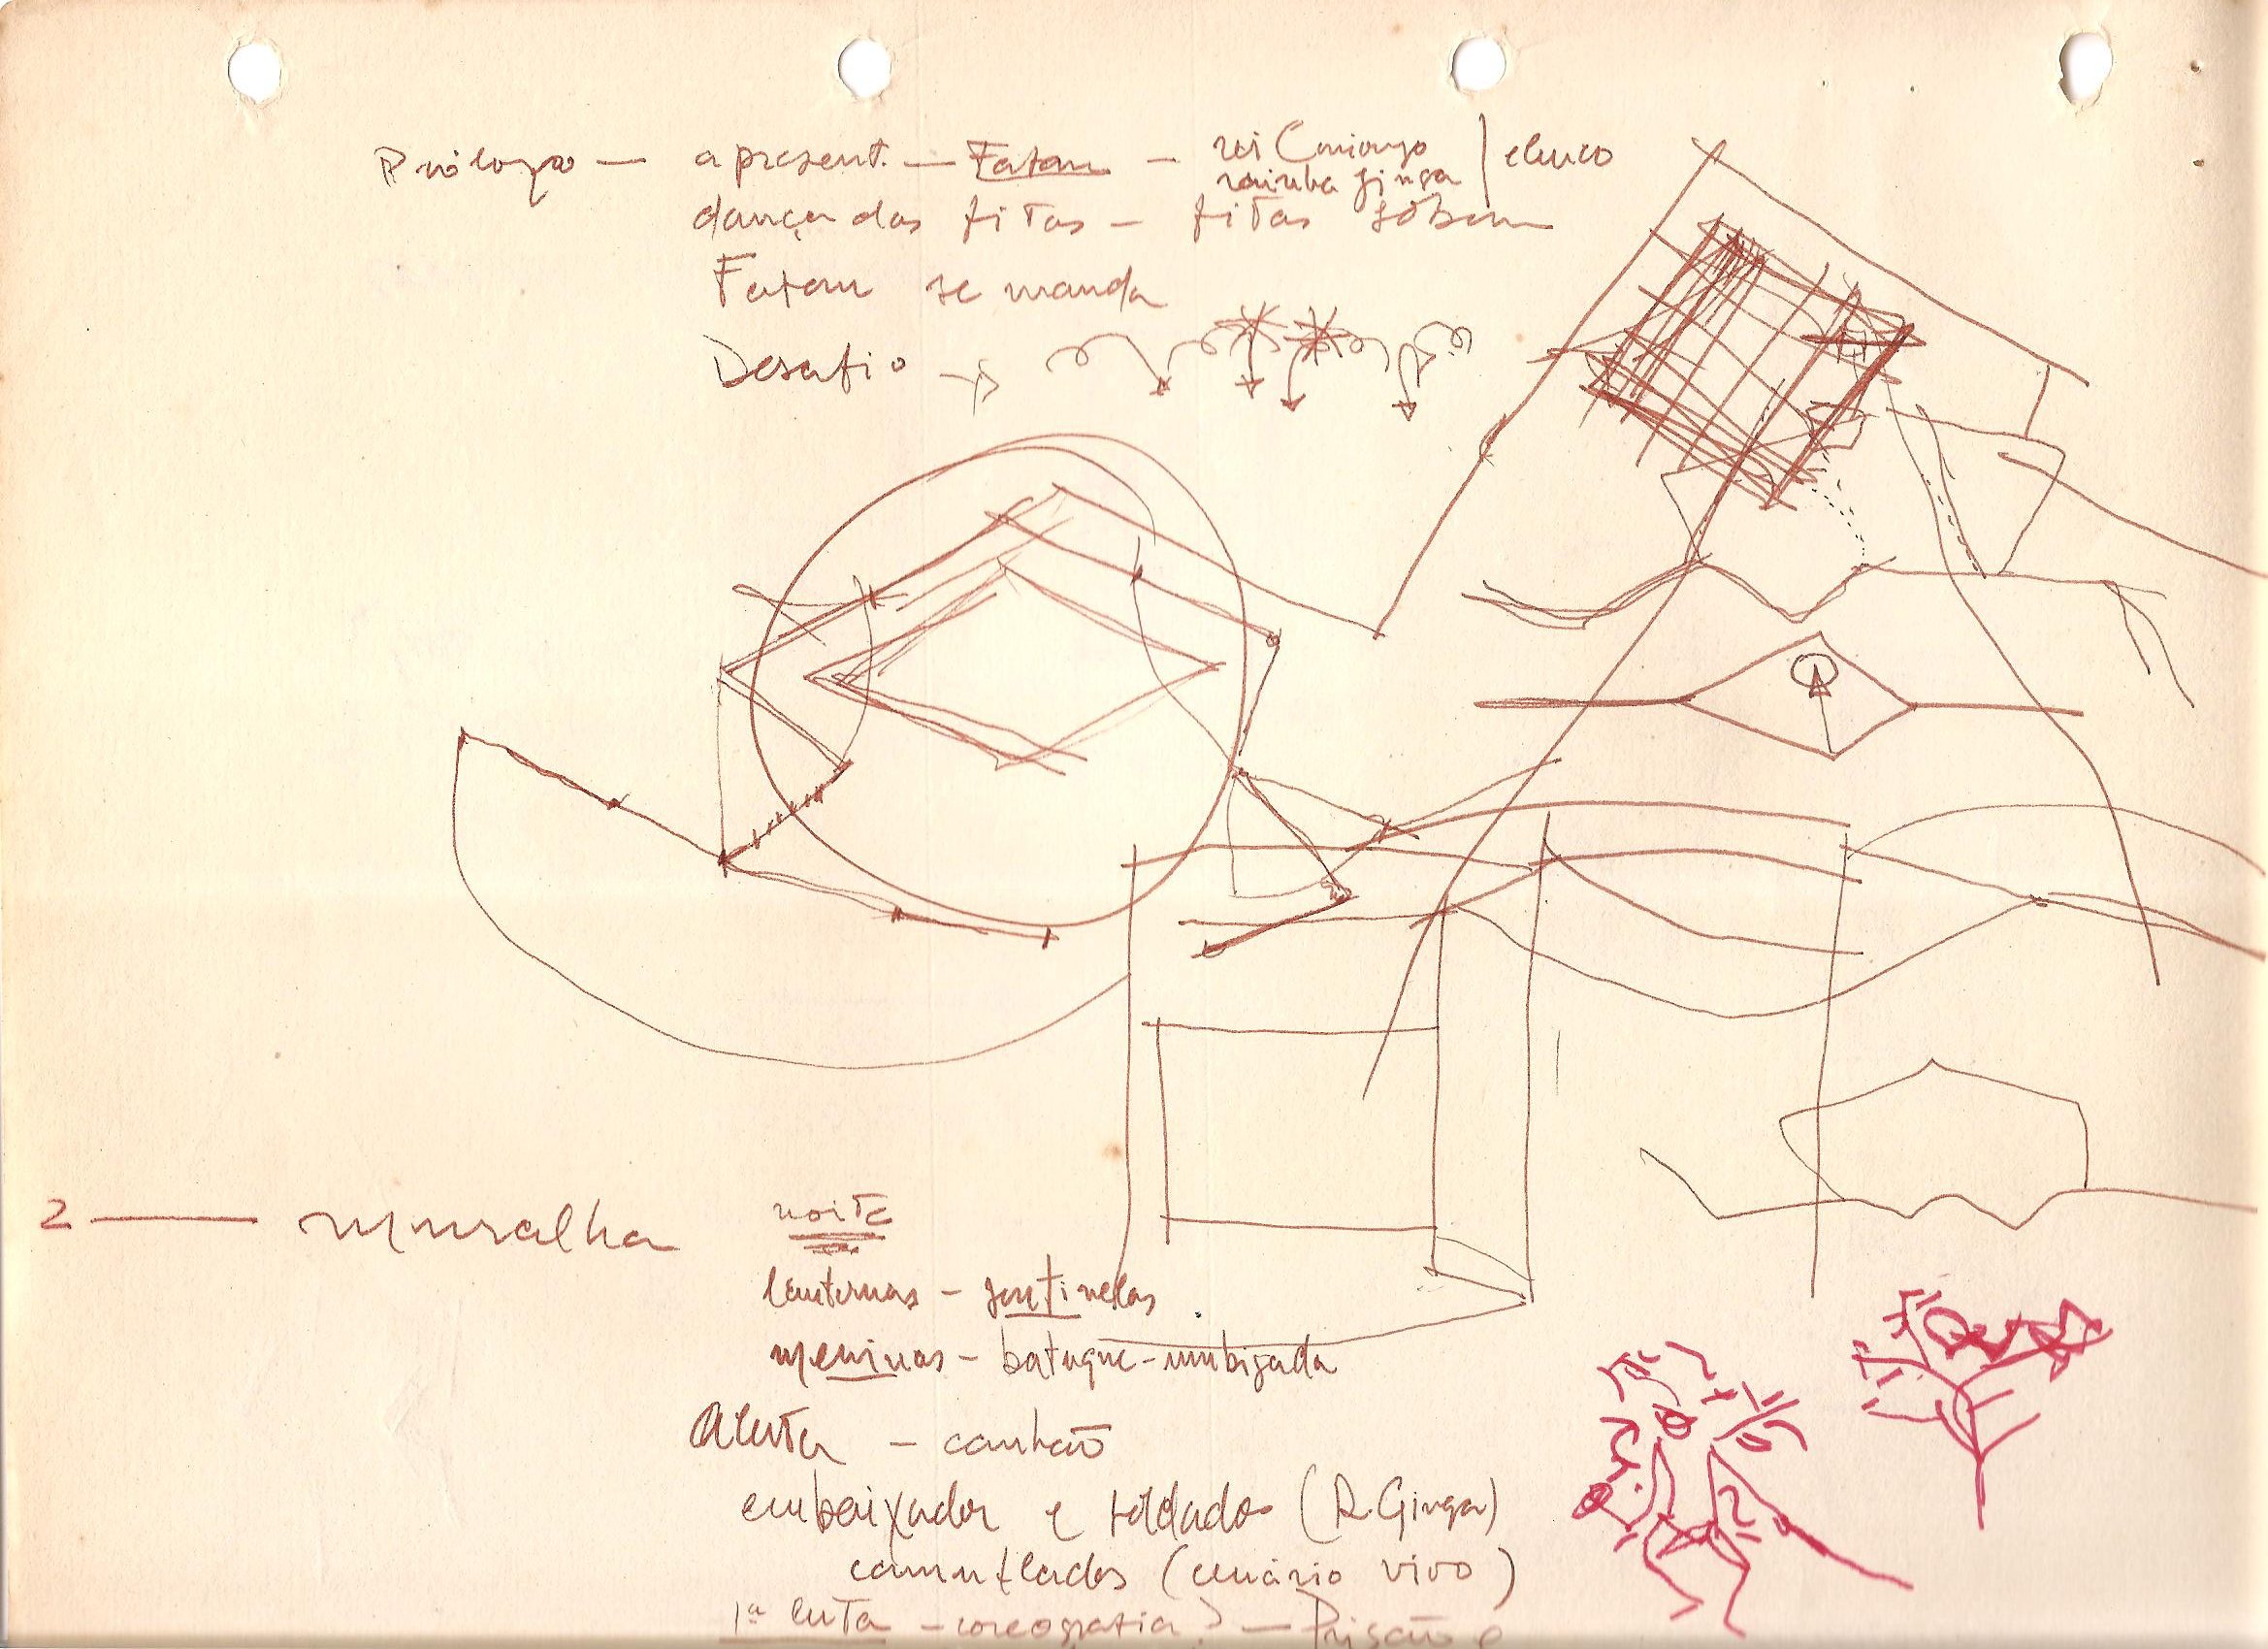 Prólogo — apresent. — Fatau — rei Coniongo / elenco
rainha ginga
dança das fitas — fitas sobem
Fatau se manda
Desafio →
2 — muralha noite
lanternas — sentinelas
meninas — batuque — umbigada
Alerta — canhão
embaixador e soldados (R. Ginga)
camuflados (cenário vivo)
1ª luta — coreografia? — Prisão e